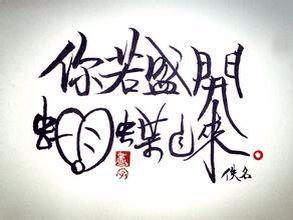 你若盛開
蝴蝶自來
佚名